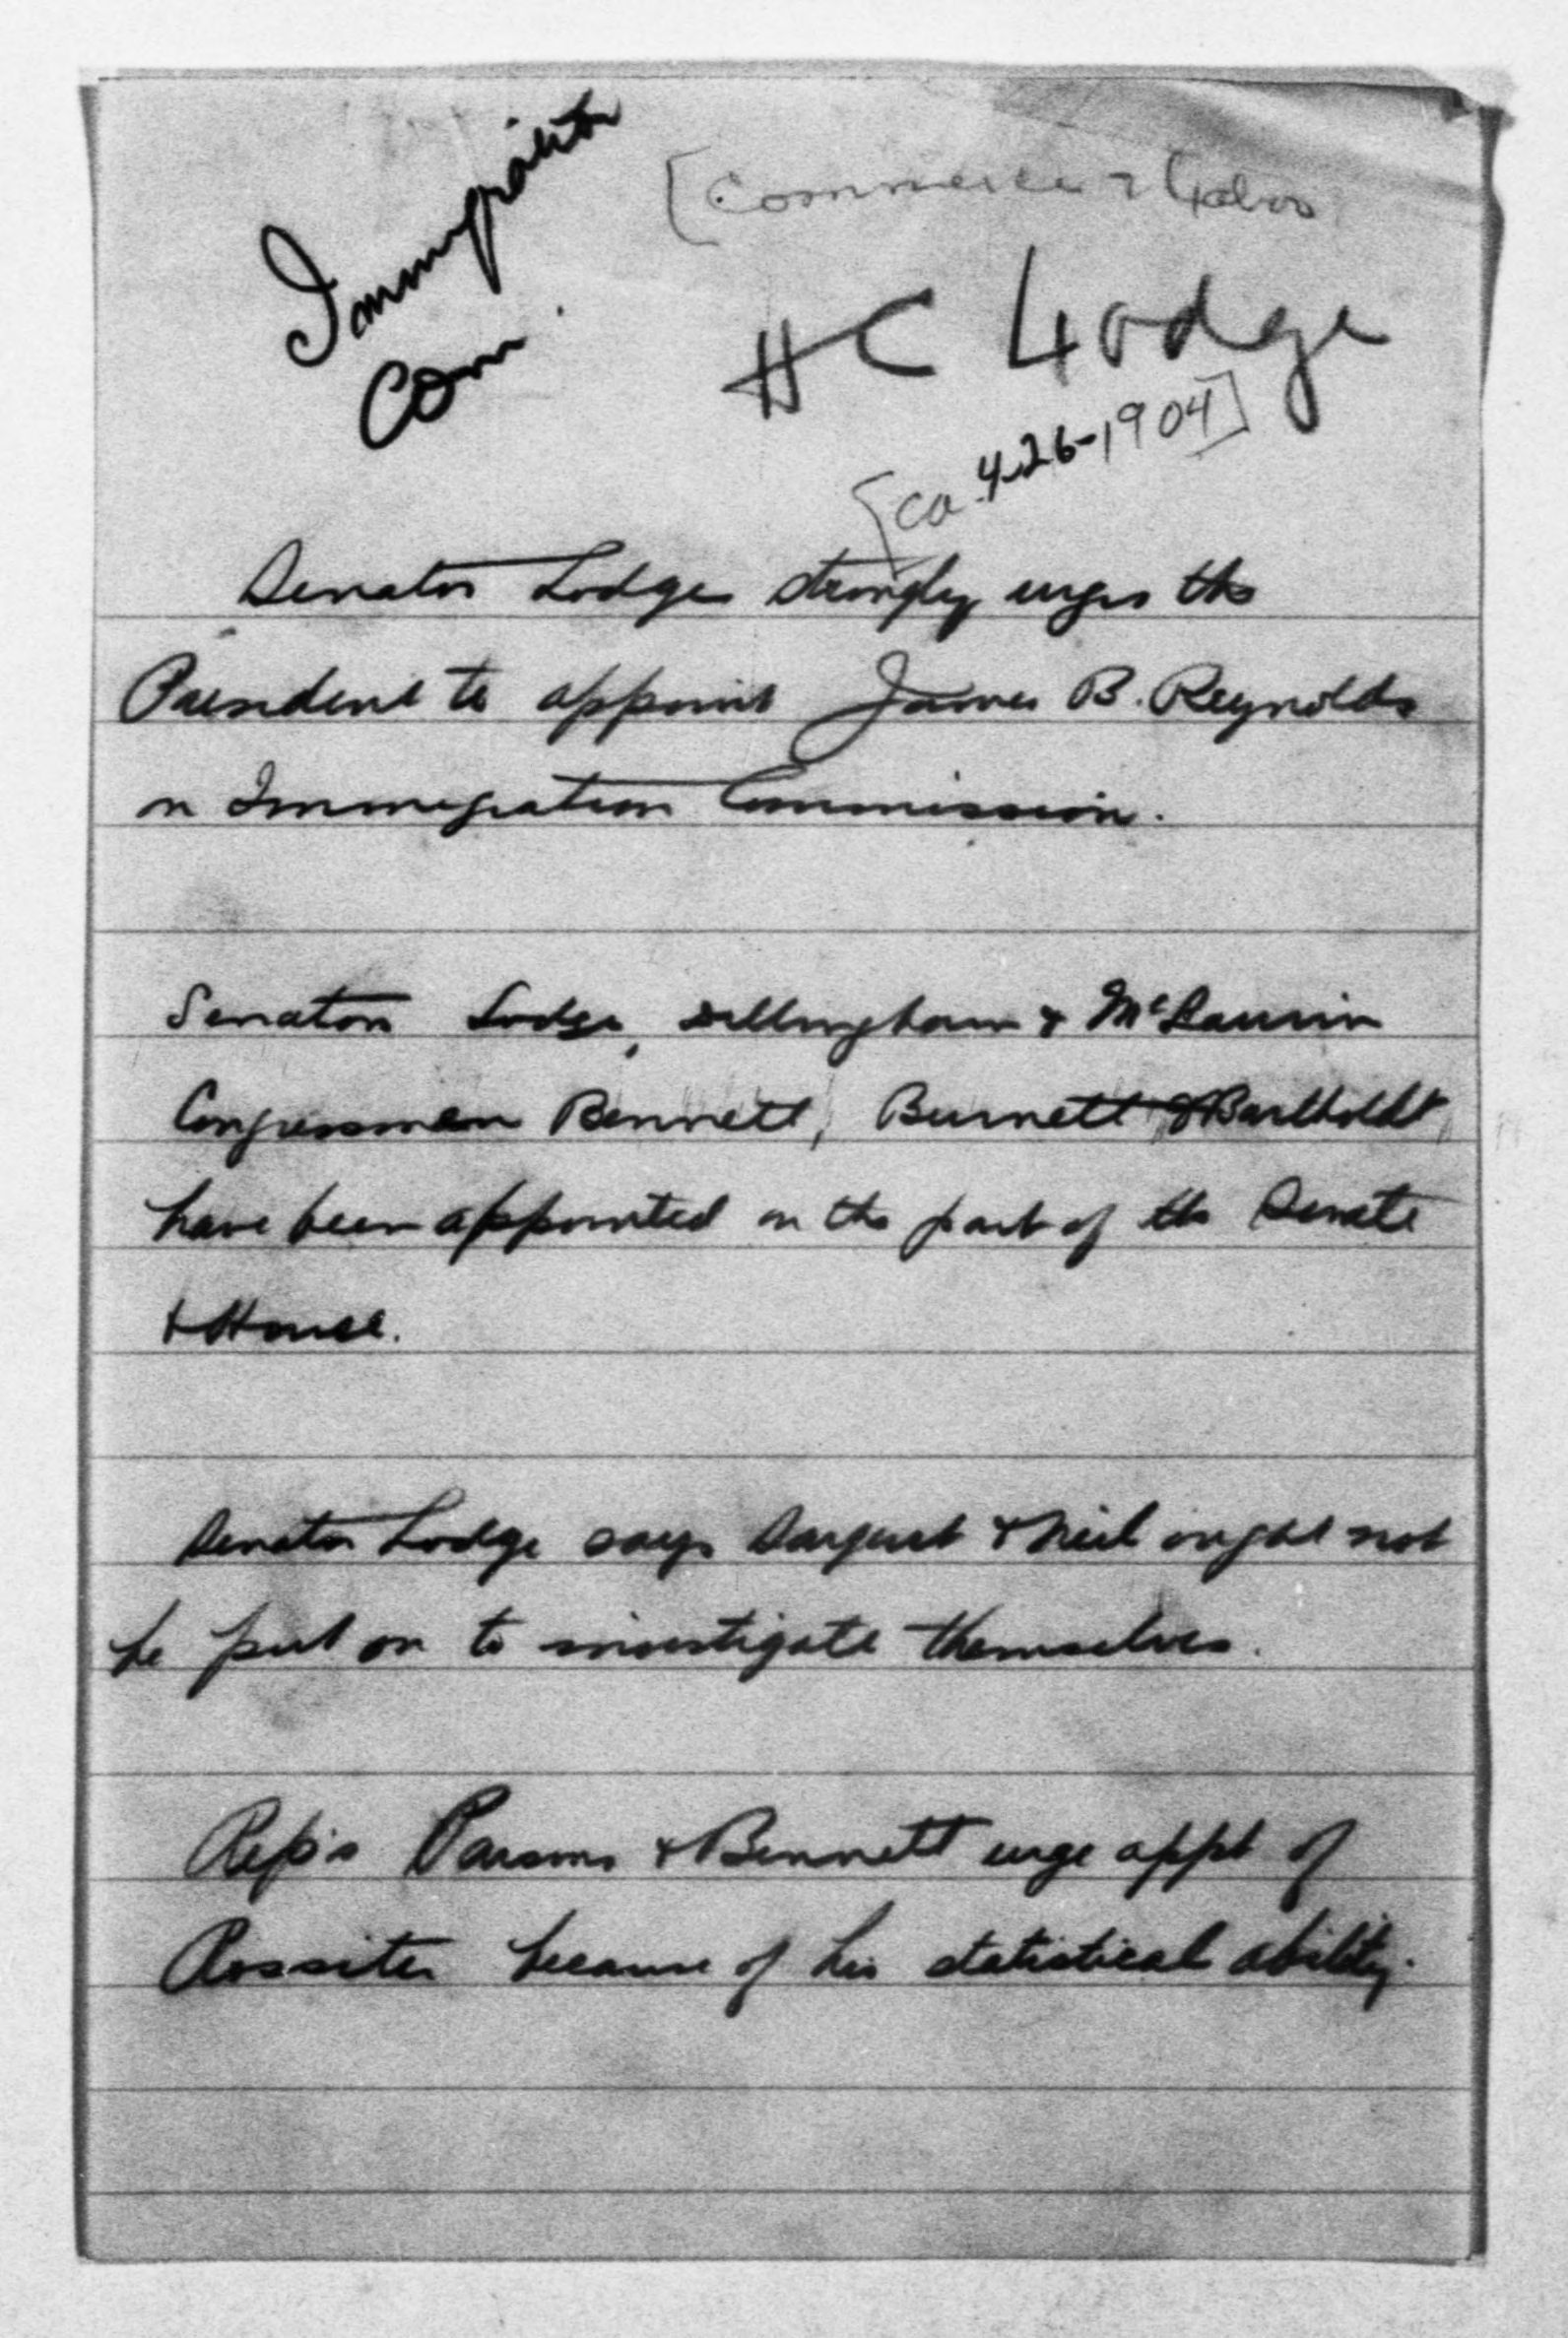 Immigration
Com.
[Commerce & Labor
H C Lodge
[ca 4-26-1904]
Senator Lodge strongly urges the
President to appoint James B. Reynolds
on Immigration Commission.
Senators Lodge, Dillingham & McLaurin
Congressmen Bennett, Burnett & Bartholdt,
have been appointed on the part of the Senate
& House.
Senator Lodge says Sargent & Neil ought not
be put on to investigate themselves.
Rep's Parsons & Bennett urge appt of
Rossiter because of his statistical ability.